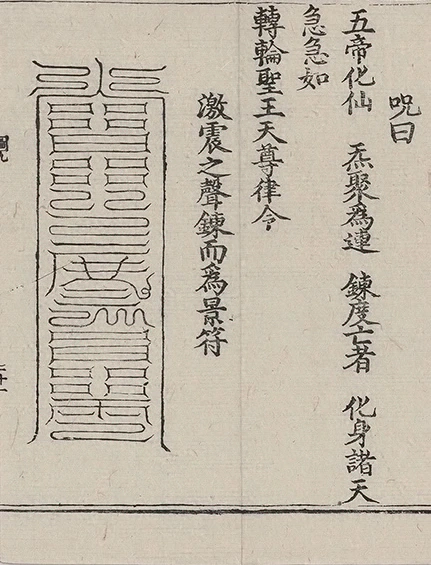 咒曰
五帝化仙　炁聚爲連　鍊度亡者　化身諸天
急急如
轉輪聖王天尊律令
激震之聲鍊而爲景符